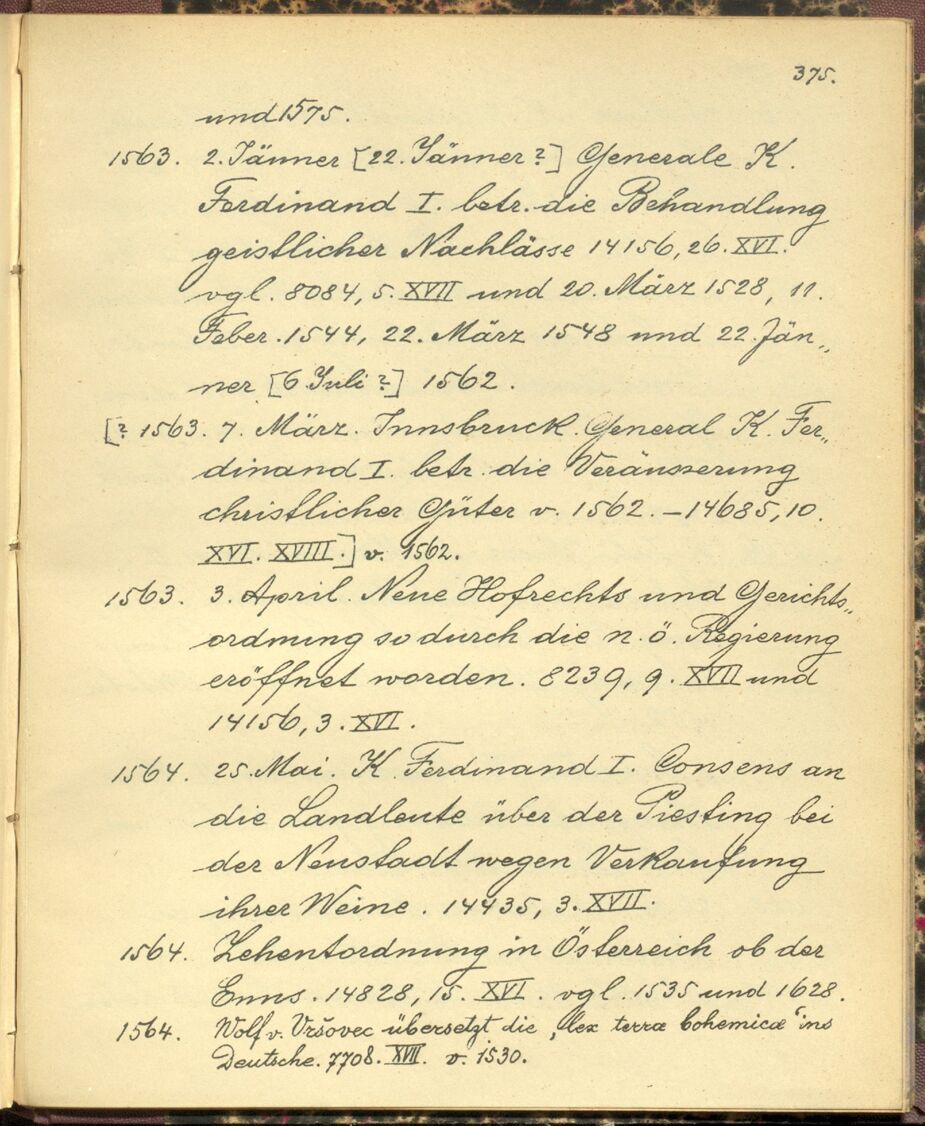 375.
und 1575.
1563. 2. Jänner [22. Jänner?] Generale K.
Ferdinand I. betr. die Behandlung
geistlicher Nachlässe 14156, 26. XVI.
vgl. 8084, 5. XVII und 20. März 1528, 11.
Feber. 1544, 22. März 1548 und 22. Jän„
ner [6 Juli?] 1562.
[? 1563. 7. März. Innsbruck. General K. Fer„
dinand I. betr. die Veräusserung
christlicher Güter v. 1562. – 14685, 10.
XVI. XVIII.] v. 1562.
1563. 3. April. Neue Hofrechts und Gerichts„
ordnung so durch die n. ö. Regierung
eröffnet worden. 8239, 9. XVII und
14156, 3. XVI.
1564. 25. Mai. K. Ferdinand I. Consens an
die Landleute über der Piesting bei
der Neustadt wegen Verkaufung
ihrer Weine. 14435, 3. XVII.
1564. Zehentordnung in Österreich ob der
Enns. 14828, 15. XVI. vgl. 1535 und 1628.
1564. Wolf v. Vršovec übersetzt die „lex terræ bohemicæ“ ins
Deutsche. 7708. XVII. v. 1530.